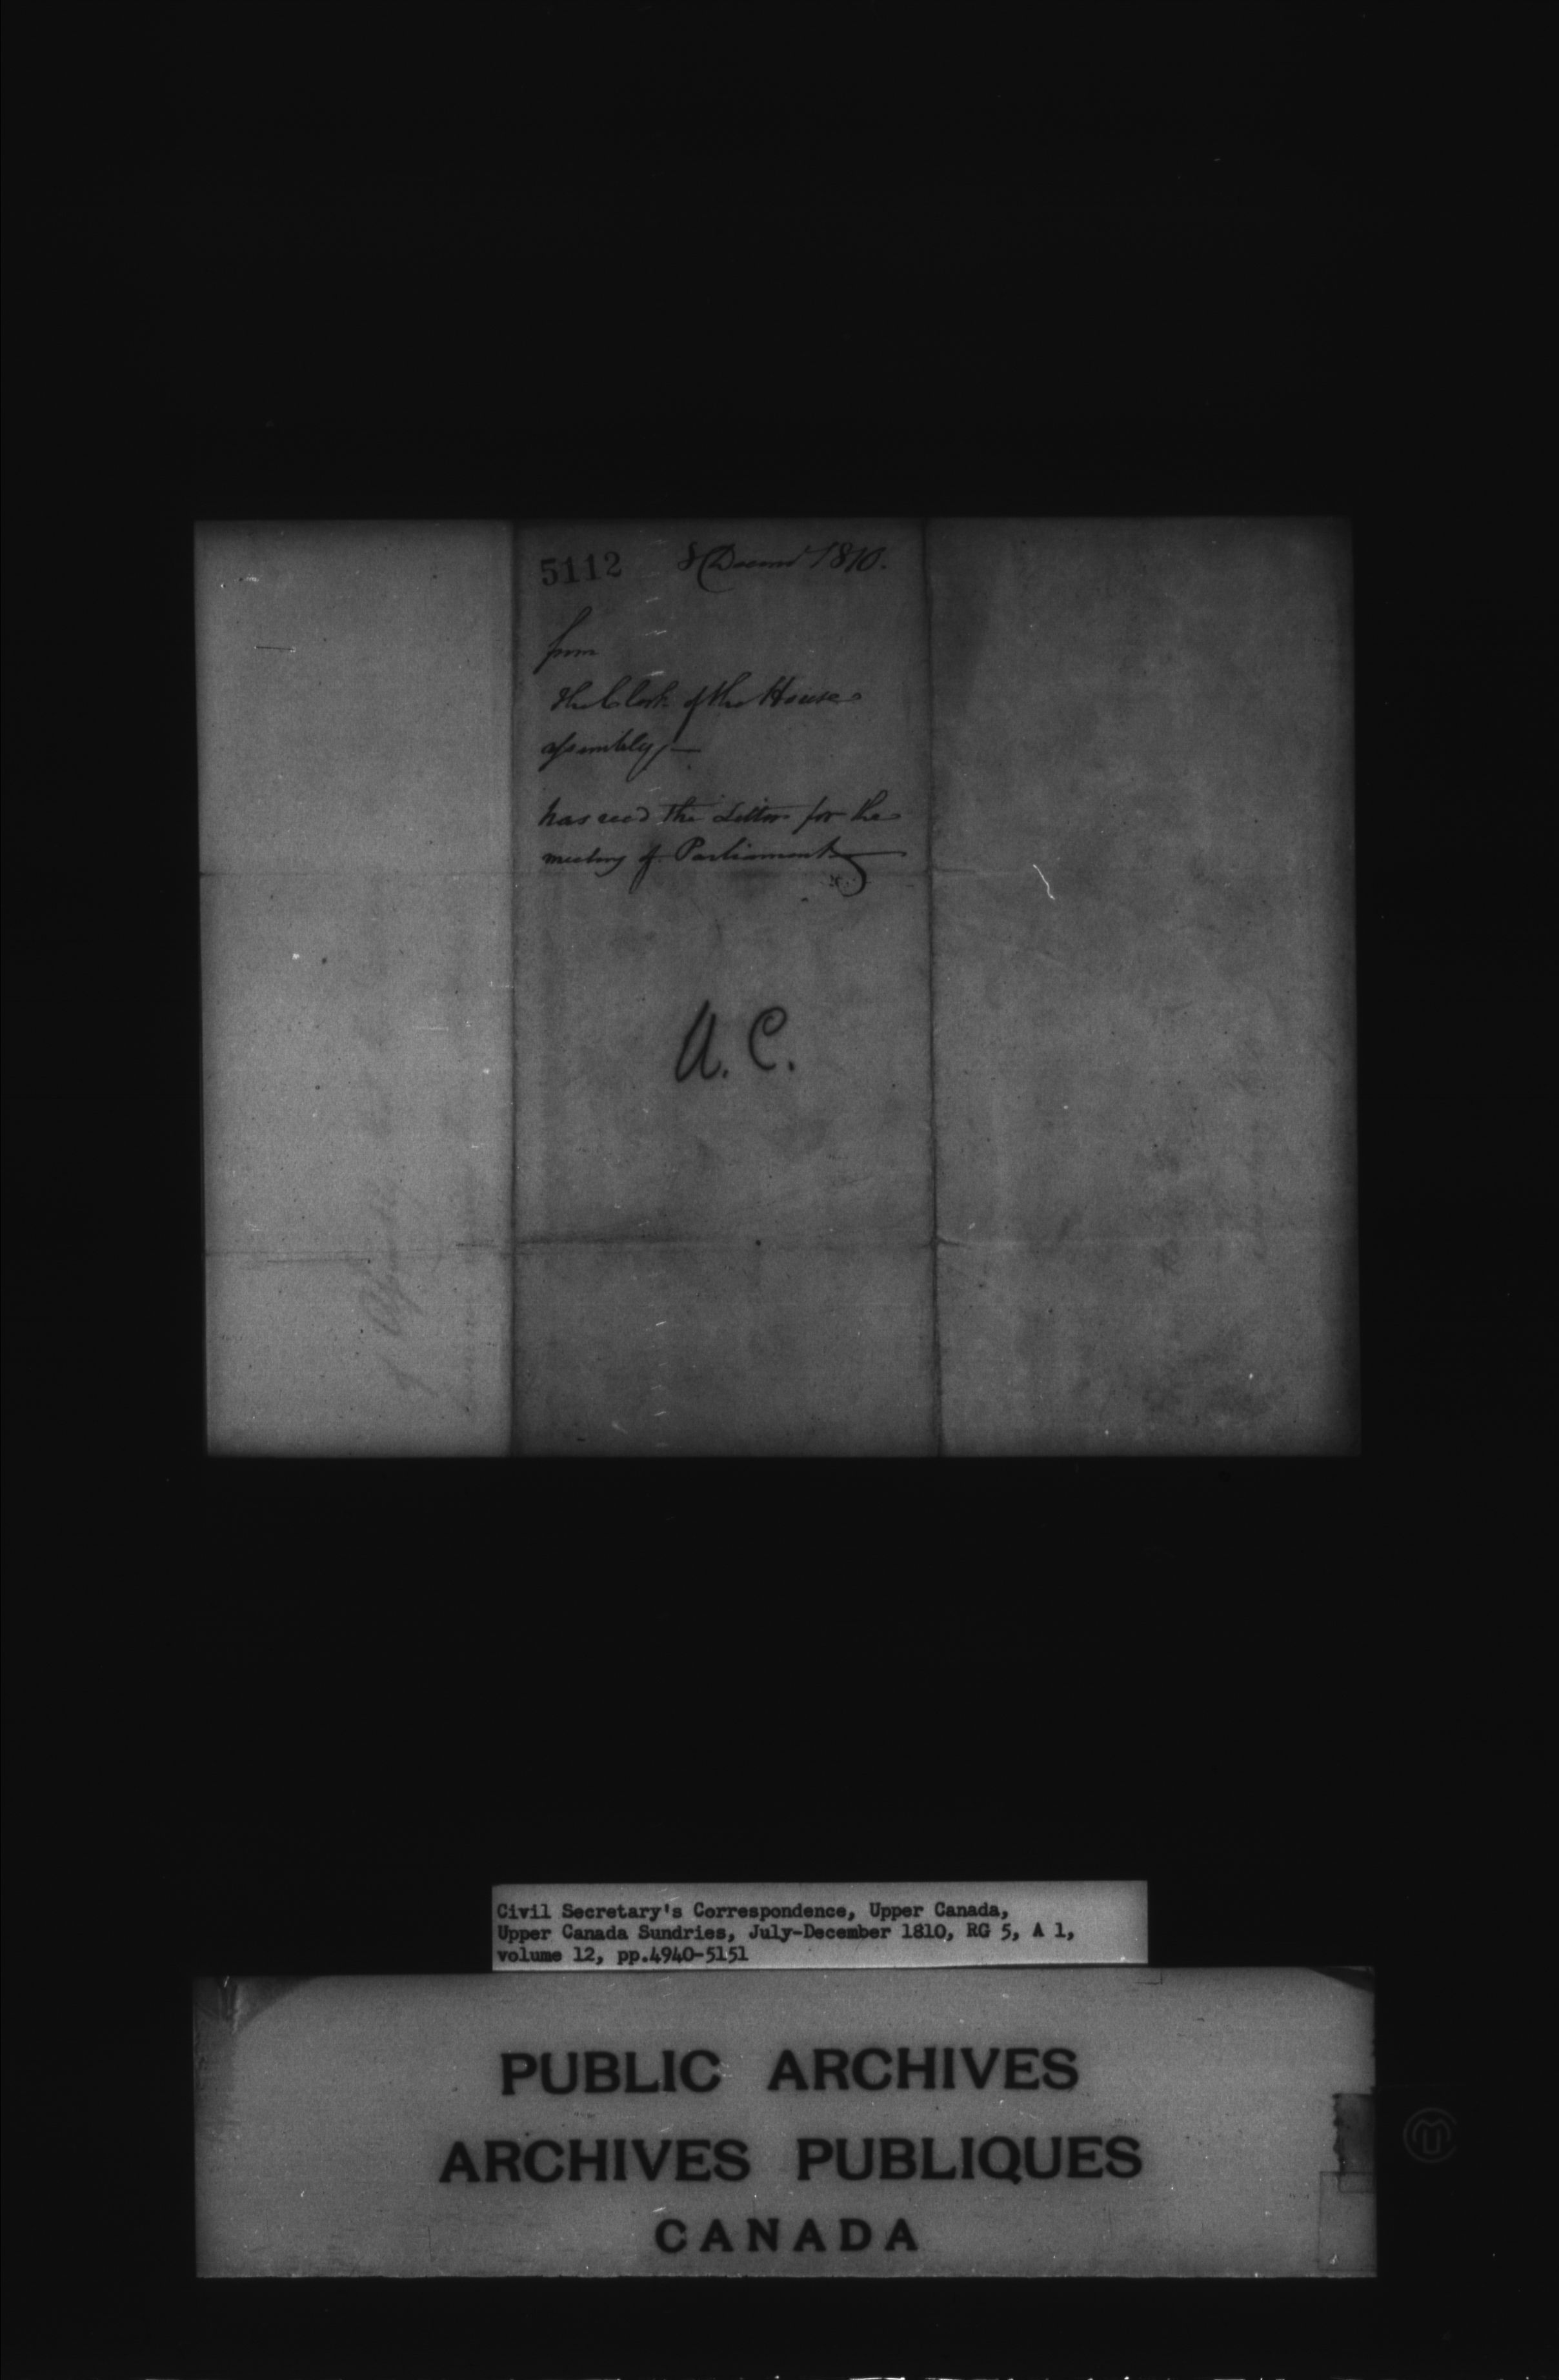 5112 8 Decemr 1810.
from
The Clerk of the House
assembly,—
has recd the Letters for the
meeting of Parliament
U. C.
Civil Secretary's Correspondence, Upper Canada,
Upper Canada Sundries, July-December 1810, RG 5, A 1,
volume 12, pp.4940-5151
PUBLIC ARCHIVES
ARCHIVES PUBLIQUES
CANADA